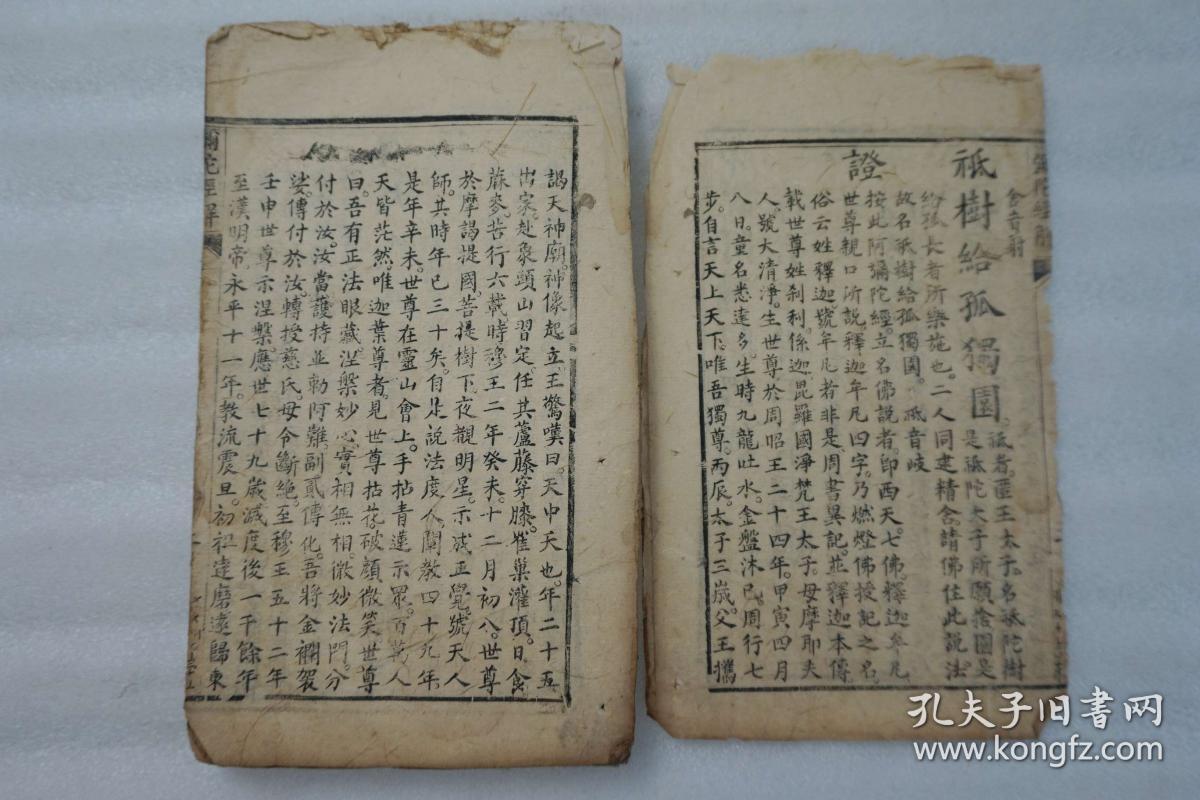 祗樹給孤獨園
祗者匿王太子名祗陀樹
是祗陀太子所願捨園是
給孤長者所樂施也。二人同建精舍請佛住此說法
故名祗樹給孤獨園。祗音岐
證
按此阿彌陀經立名佛說者。即西天七佛。釋迦牟尼
世尊親口所說。釋迦牟尼四字。乃燃燈佛授記之名。
俗云姓釋迦。號牟尼者非是。周書異記。並釋迦本傳
載世尊姓剎利。係迦毘羅國淨梵王太子。母摩耶夫
人。號大清淨。生世尊於周昭王二十四年。甲寅四月
八日。童名悉達多。生時九龍吐水。金盤沐已。周行七
步。自言天上天下。唯吾獨尊。丙辰。太子三歲。父王攜
謁天神廟。神像起立。王驚嘆曰。天中天也。年二十五
出家。赴象頭山習定。任其蘆藤穿膝。雀巢灌頂。日食
麻麥。苦行六載時穆王二年癸未。十二月初八。世尊
於摩謁提國。菩提樹下。夜觀明星。示成正覺。號天人
師。其時年已三十矣。自是說法度人。闡教四十九年。
是年辛未。世尊在靈山會上。手拈青蓮示眾。百萬人
天皆茫然。唯迦葉尊者。見世尊拈花。破顏微笑。世尊
曰。吾有正法眼藏。涅槃妙心。實相無相。微妙法門。分
付於汝。汝當護持。並勅阿難。副貳傳化。吾將金襴袈
娑。傳付於汝。轉授慈氏。毋令斷絕。至穆王五十二年
壬申世尊示涅槃。應世七十九歲。滅度後一千餘年
至漢明帝。永平十一年。教流震旦。初祖達磨。遠歸東
彌陀經解
孔夫子旧书网
www.kongfz.com